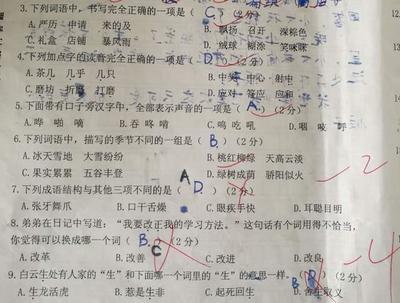 3.下列词语中，书写完全正确的一项是（ C ）（2分）
A.严历 申请 来的及 B.飘扬 召开 深棕色
C.礼盒 店铺 暴风雨 D.绒球 糊涂 笑咪咪
4.下列加点字的读音完全正确的一项是（ D ）（2分）
A.茶几 几乎 几只 B.中 中心 射中
C.磨坊 折 打磨 D.应对 答应 应和
5.下面带有口字旁汉字中，全部表示声音的一项是（ A ）（2分）
A.哗 啪 嘀 B.吞 咚 啃 C.鸣 吃 吼 D.咽 咳 呼
6.下列词语中，描写的季节不同的一组是（ B ）（2分）
A.冰天雪地 大雪纷纷 B.桃红柳绿 天高云淡
C.果实累累 五谷丰登 A D.绿树成荫 骄阳似火 -2
7.下列成语结构与其他三项不同的是（ D ）（2分）
A.张牙舞爪 B.口干舌燥 C.眼疾手快 D.耳聪目明
8.弟弟在日记中写道：“我要改正我的学习方法。”这句话有个词用得不恰当，
你觉得可以换成哪一个词（ B ）（2分）
A.改革 B.改善 C C.改进 D.改良 -4
9.白云生处有人家的“生”和下面哪一个词里的“生”的意思一样。（ D ）（2分）
A.生龙活虎 B.惹是生非 C.起死回生 D.舍生取义